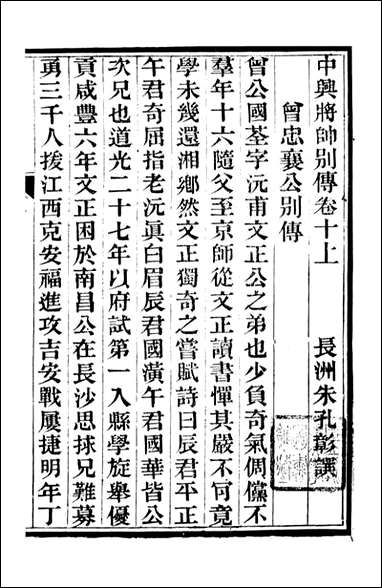 中興將帥別傳卷十上
長洲朱孔彰譔
曾忠襄公別傳
曾公國荃字沅甫文正公之弟也少負奇氣倜儻不
羣年十六隨父至京師從文正讀書憚其嚴不肎竟
學未幾還湘鄉然文正獨奇之嘗賦詩曰辰君平正
午君奇屈指老沅眞白眉辰君國潢午君國華皆公
次兄也道光二十七年以府試第一入縣學旋舉優
貢咸豐六年文正困於南昌公在長沙思捄兄難募
勇三千人援江西克安福進攻吉安戰屢捷明年丁